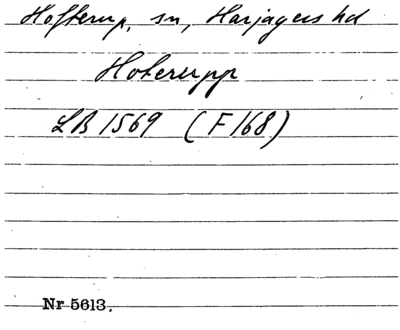 Hofterup, sn, Harjagers hd
Hoterupp
LB 1569 (F 168)
Nr 5613.